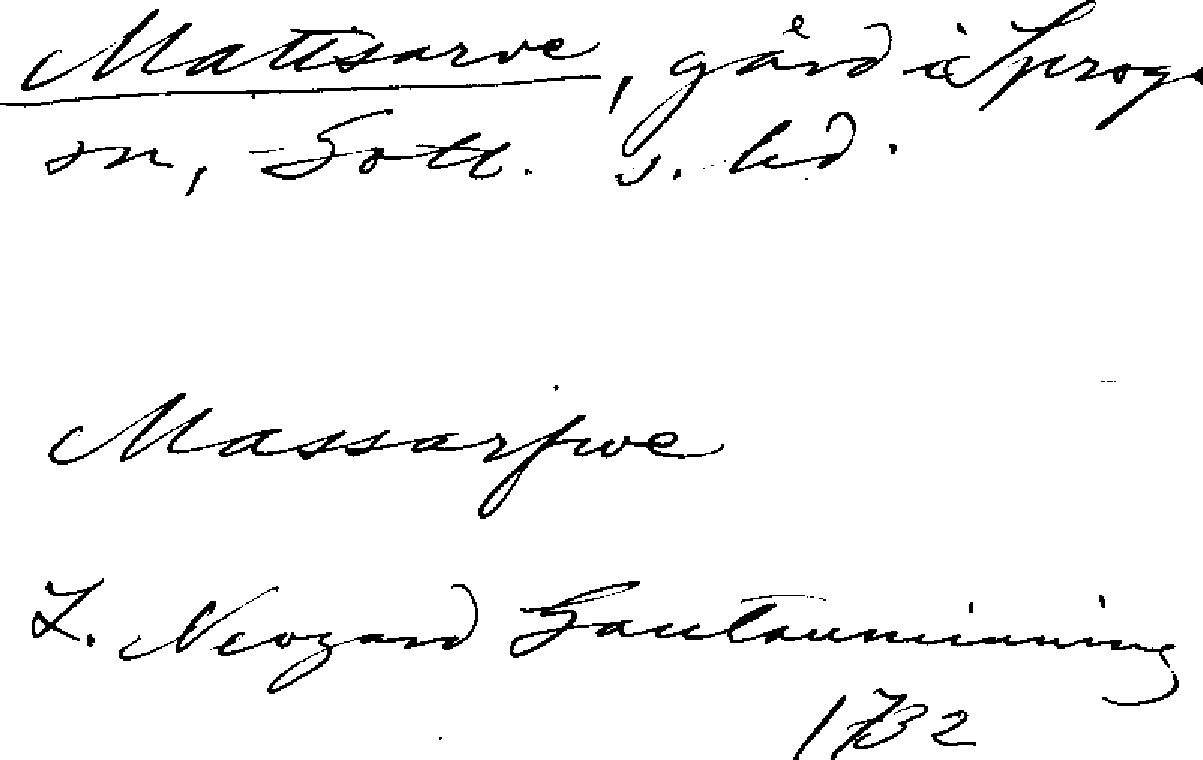 Mattsarve, gård i Sproge
sn, Gotl. s. hd.
Massarfwe
L. Neogard Gautauminning
1732